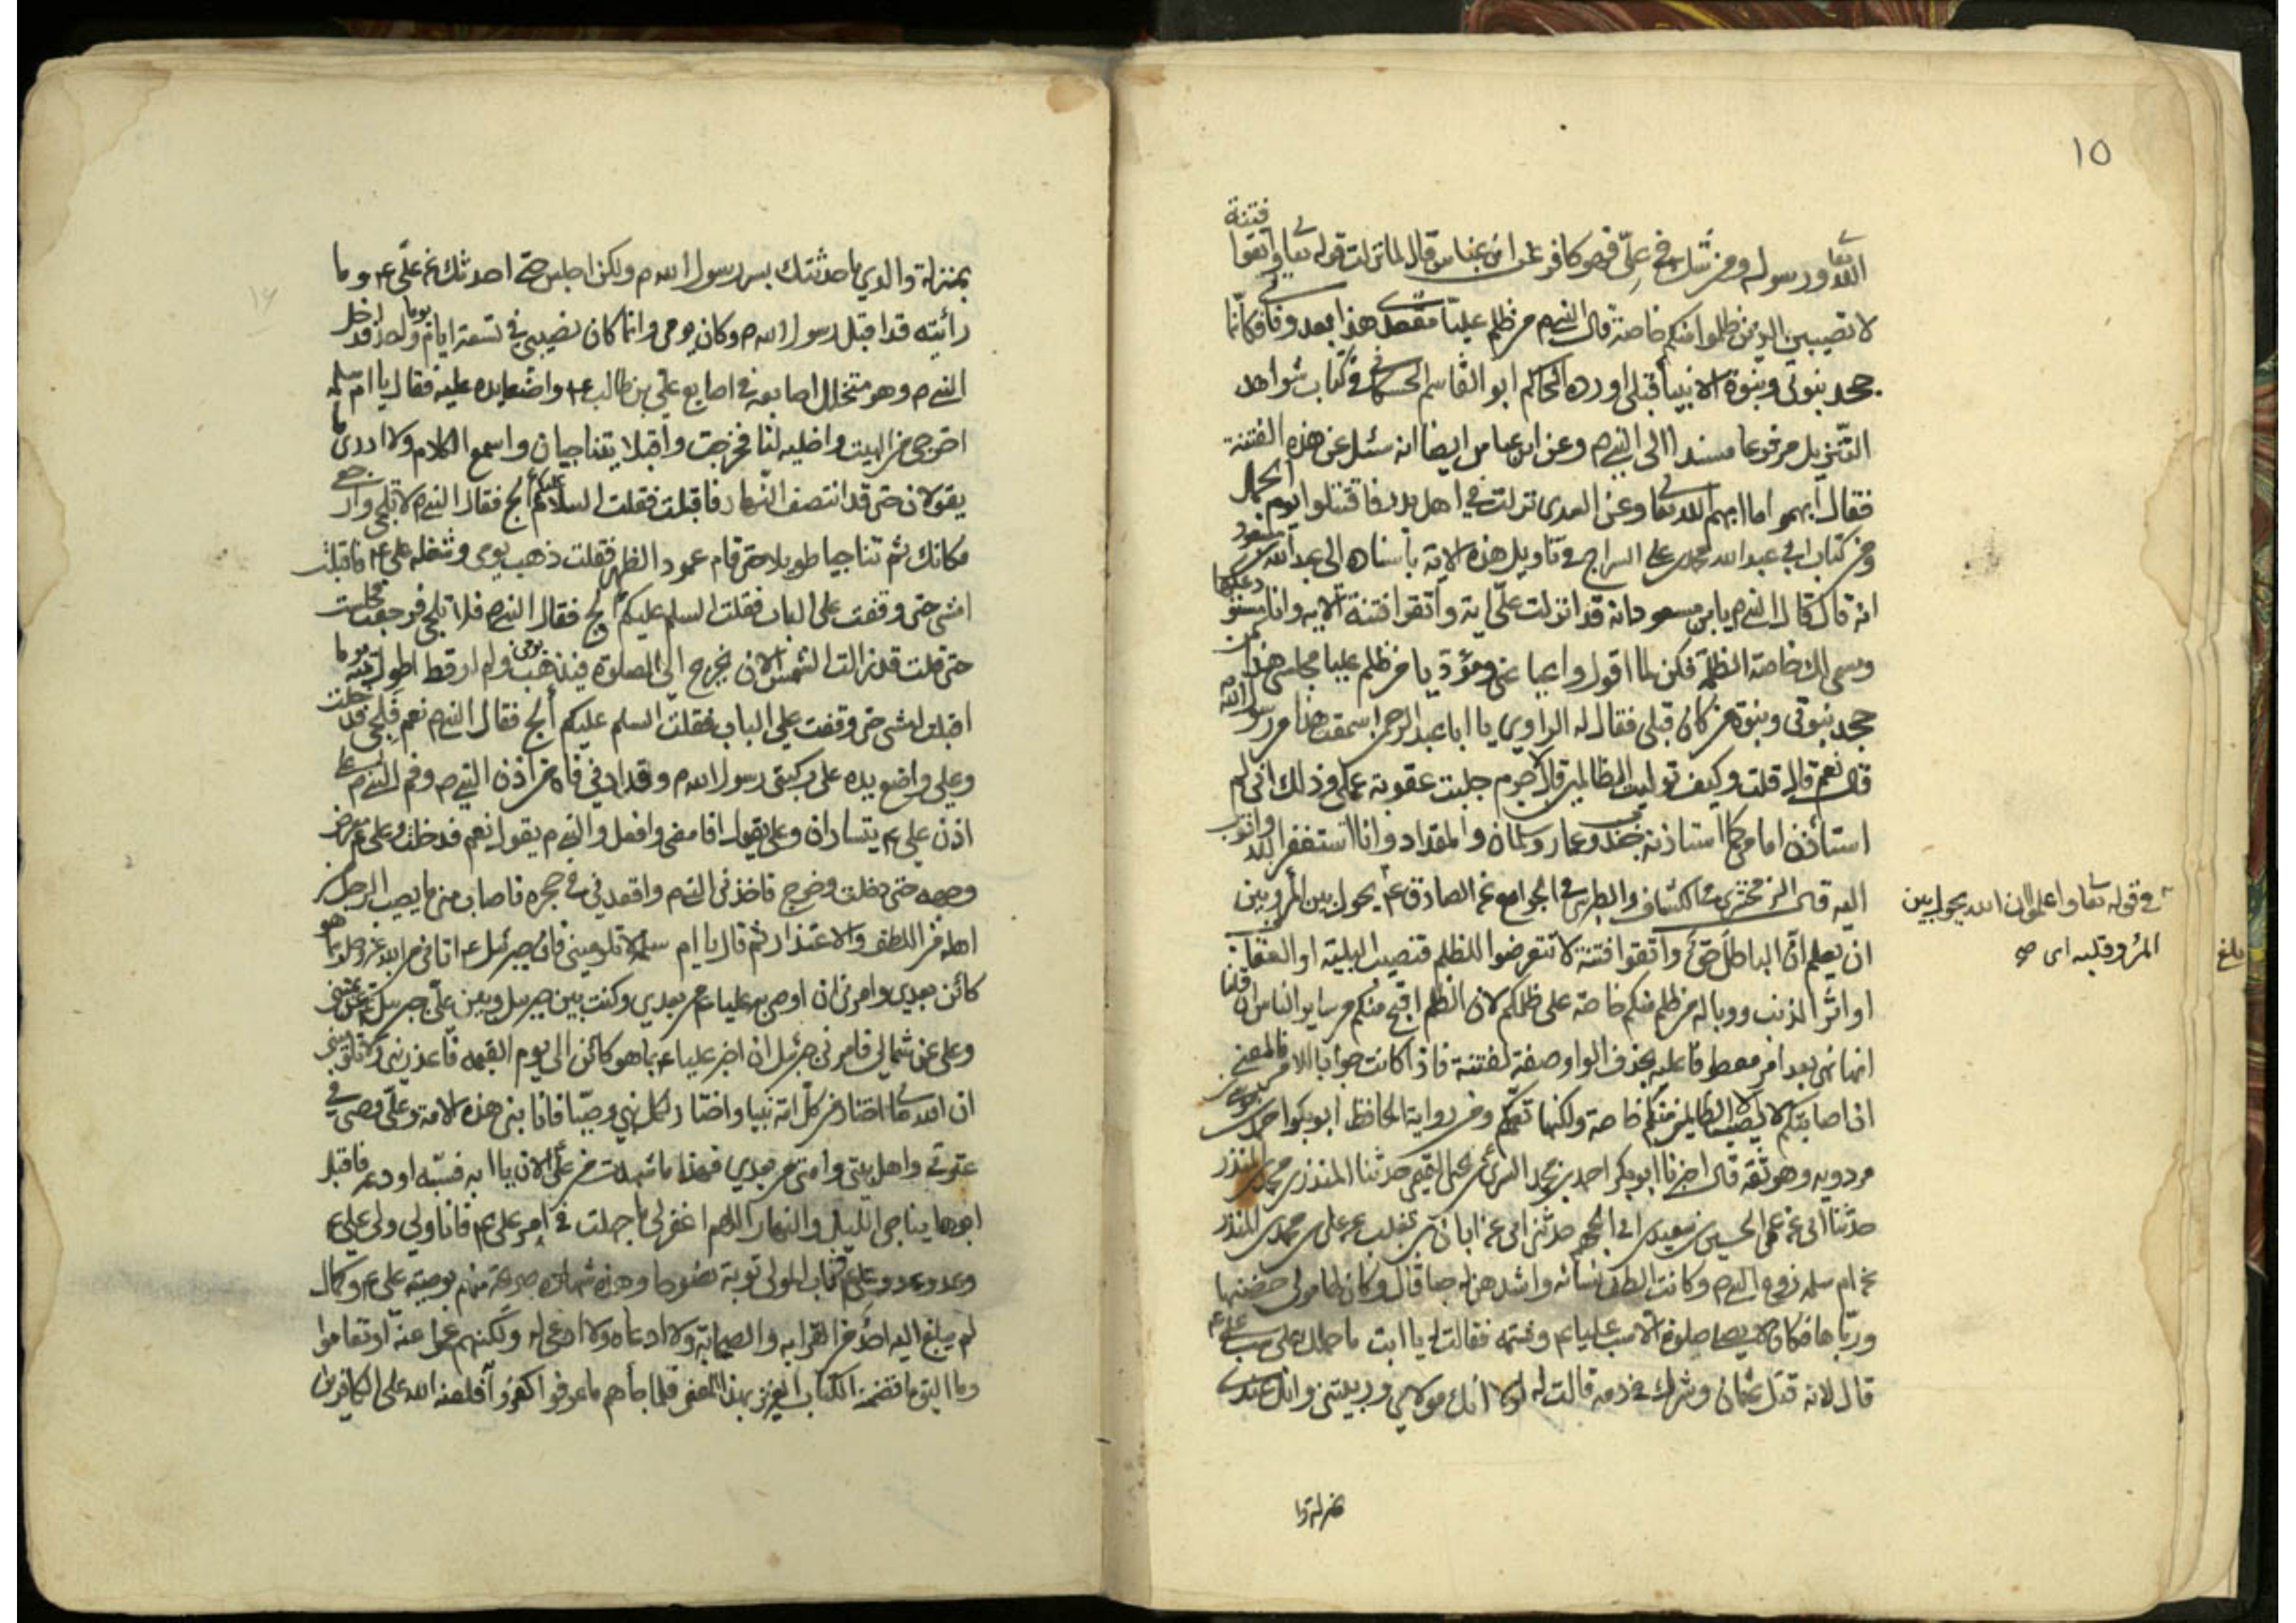 ١٥
فتنة
الله تعا ورسوله ومن شك في علي فهو كافر عن ابن عباس قال لما نزلت قوله تعا واتقوا
لا تصيبن الذين ظلموا منكم خاصة قال النبي ص من ظلم عليا مقعدي هذا بعد وفاتي فكانما
جحد بنوتي وبنوة الانبيا قبلي اورده الحاكم ابو القاسم الحسكاني في كتاب شواهد
التنزيل مرفوعا مسندا الى النبي ص وعن ابن عباس ايضا انه سئل عن هذه الفتنة
فقال ابهموا ما ابهم الله تعا وعن السدي نزلت في اهل بدر فاقتتلوا يوم الجمل
ومن كتاب ابي عبد الله محمد بن علي السراج في تاويل هذه الاية باسناده الى عبد الله بن مسعود
انه قال قال النبي ص يا بن مسعود انه قد انزلت علي اية واتقوا فتنة الاية وانا مستودعكها
ومسمي لك خاصة الظلمة فكن لما اقول واعيا عني مؤديا من ظلم عليا مجلسي هذا كمن
جحد بنوتي وبنوة من كان قبلي فقال له الراوي يا ابا عبد الرحمن اسمعت هذا من رسول الله ص
قال نعم قال قلت وكيف توليت الظالمين قال لا جرم جلبت عقوبة عملي وذلك اني لم
استأذن امامي كما استاذنه جندب وعمار وسلمان والمقداد وانا استغفر الله واتوب
اليه قال الزمخشري في الكشاف والطبرسي في الجوامع عن الصادق ع يحول بين المرء وبين
في قوله تعا واعلموا ان الله يحول بين
المرء وقلبه اى صح
بلغ
ان يعلم ان الباطل حق واتقوا فتنة لا تتعرضوا للظلم فتصيب البلية او العقاب
او اثر الذنب ووباله من ظلم منكم خاصة على ظلمكم لان الظلم اقبح منكم من ساير الناس ان قلنا
انها نهي بعد امر معطوفا عليه بحذف الواو صفة لفتنة فاذا كانت جوابا للامر فالمعنى
ان اصابتكم لا تصيب الظالمين منكم خاصة ولكنها تعمكم ومن رواية الحافظ ابو بكر احمد بن موسى بن
مردويه وهو ثقة قال اخبرنا ابو بكر احمد بن محمد السري بن يحيى التميمي حدثنا المنذر بن محمد بن المنذر
حدثنا ابي عن عمي الحسين بن سعيد بن ابي الجهم حدثني ابي عن ابان بن تغلب عن علي بن محمد بن المنذر
عن ام سلمة زوج النبي ص وكانت الطف نسائه واشدهن له حبا قال وكان لها مولى حضنها
ورباها فكان لا يصلي صلوة الا سب عليا ع وشتمه فقالت له يا ابت ما حملك على سب علي ع
قال لانه قتل عثمان وشرك في دمه قالت له لولا انك مولاي وربيتني وانك عندي
بمنزلة وا
بمنزلة والدي ما حدثتك بسر رسول الله ص ولكن اجلس حتى احدثك عن علي ع وما
رايته قد اقبل رسول الله ص وكان يومي وانما كان نصيبي في تسعة ايام يوما واحد فدخل
النبي ص وهو متخلل اصابعه في اصابع علي بن ابي طالب ع واضعا يده عليه فقال يا ام سلمة
اخرجي من البيت واخليه لنا فخرجت واقبلا يتناجيان واسمع الكلام ولا ادرى ما
يقولان حتى قد انتصف النهار فاقبلت فقلت السلام عليكم الج فقال النبي ص لا تلجي وارجعي
مكانك ثم تناجيا طويلا حتى قام عمود الظهر فقلت ذهب يومي وشغله علي ع فاقبلت
امشي حتى وقفت على الباب فقلت السلم عليكم الج فقال النبي ص فلا تلجي فرجعت فجلست
حتى قلت قد زالت الشمس الان يخرج الى الصلوة فيذهب يومي ولم ار قط اطول منه يوما
اقبلت امشي حتى وقفت علي الباب فقلت السلم عليكم الج فقال النبي ص نعم فلجي فدخلت
وعلي واضع يده على ركبتي رسول الله ص وقد ادنى فاه من اذن النبي ص وفم النبي ص على
اذن علي ع يتساران وعلي يقول افامضي وافعل والنبي ص يقول نعم فدخلت وعلي ع معرض
وجهه حتى دخلت وخرج فاخذني النبي ص واقعدني في حجره فاصاب مني ما يصيب الرجل من
اهله من اللطف والاعتذار ثم قال يا ام سلمة لا تلوميني فان جبرئيل ع اتاني من الله عز وجل بما هو
كائن بعدي وامرني ان اوصي به عليا ع من بعدي وكنت بين جبرئيل وبين علي جبرئيل عن يميني
وعلي عن شمالي فامرني جبرئيل ان اخبر عليا ع بما هو كائن الى يوم القيمة فاعذريني ولا تلوميني
ان الله تعا اختار من كل امة نبيا واختار لكل نبي وصيا فانا نبي هذه الامة وعلي وصيي في
عترتي واهل بيتي وامتي من بعدي فهذا ما شهدت من علي الان يا ابه فسبه او دعه فاقبل
ابوها يناجي الليل والنهار اللهم اغفر لي ما جهلت في امر علي ع فانا وليي ولي علي ع
وعدوي عدو علي ع فتاب المولى توبة نصوحا وهذه شهادة صريحة منهم بوصية علي ع وكمال
لم يبلغ اليه احد من القرابة والصحابة ولا ادعاه ولا ادعي له ولكنهم عموا عنه او تعاموا
وما اليق ما تضمنه الكتاب العزيز بهذا المعنى فلما جاءهم ما عرفوا كفروا به فلعنة الله على الكافرين